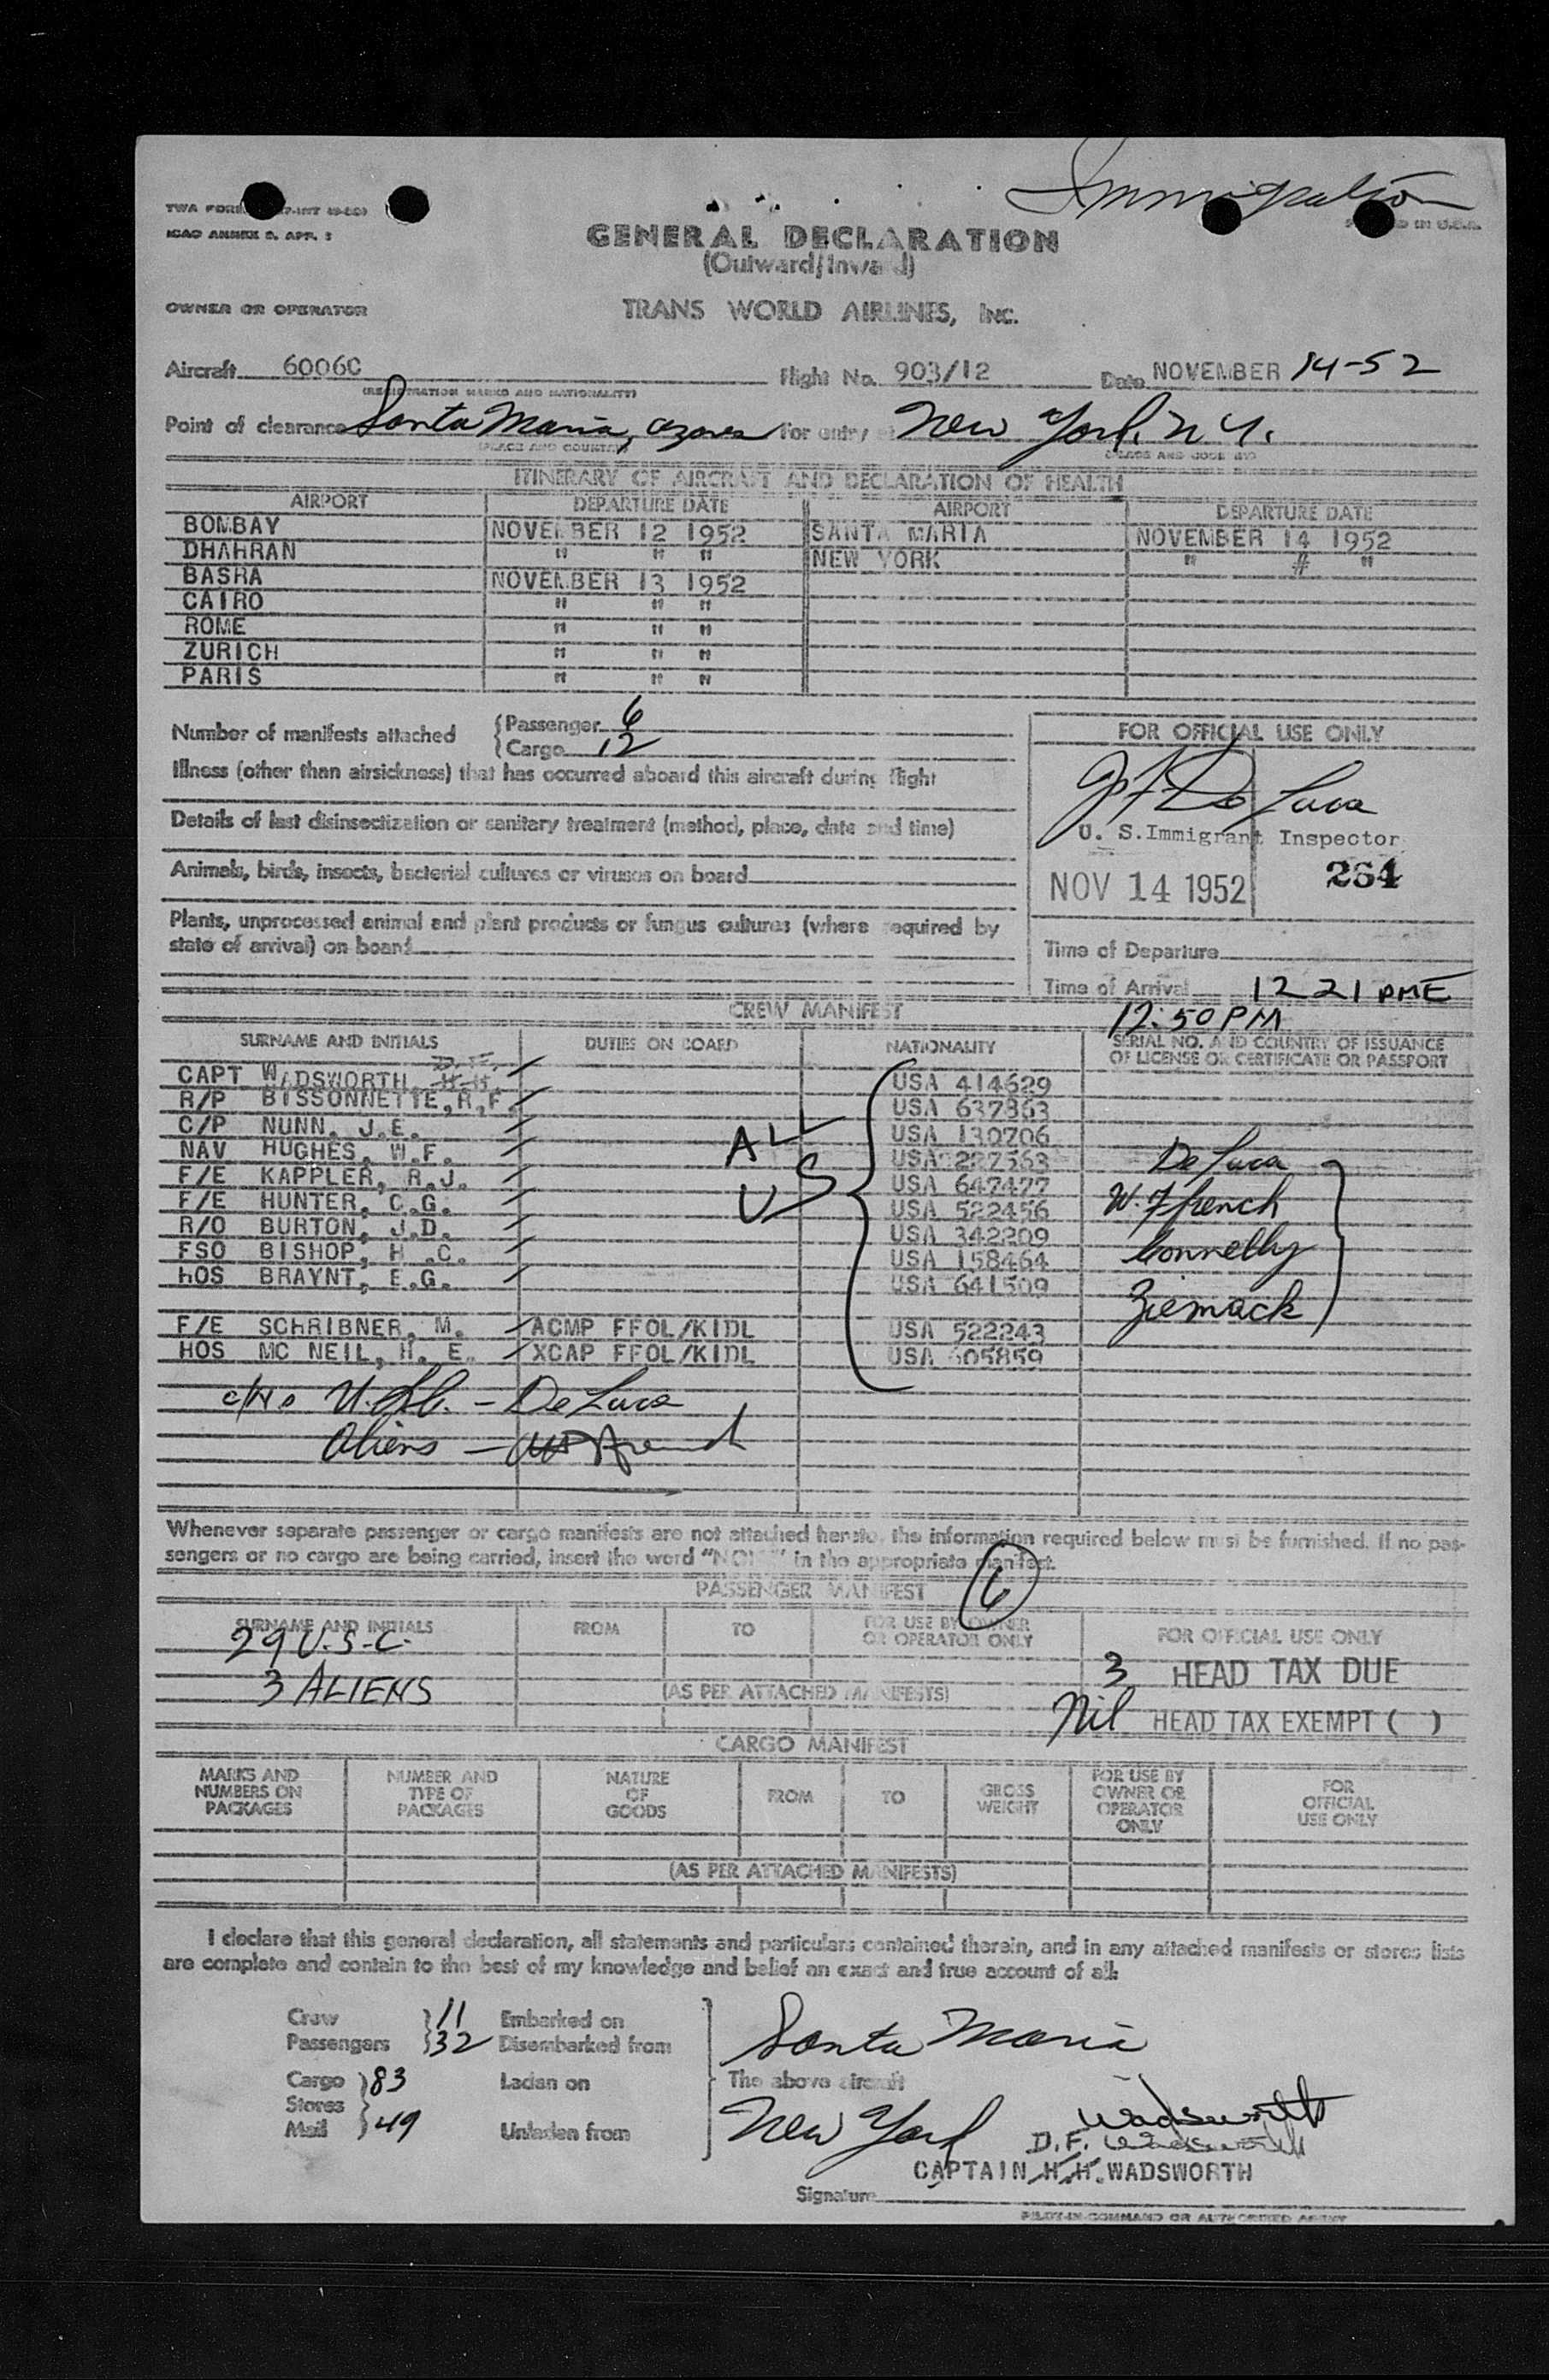 Immigration
TWA FORM -INT
ICAO ANNEX 9, APP. 1
IN U.S.A.
GENERAL DECLARATION
(Outward/Inward)
OWNER OR OPERATOR
TRANS WORLD AIRLINES, INC.
Aircraft 6006C Flight No. 903/12 Date NOVEMBER 14-52
(REGISTRATION MARKS AND NATIONALITY)
Point of clearance Santa Maria, Azores For entry at New York, N.Y.
(PLACE AND COUNTRY) (PLACE AND COUNTRY)
ITINERARY OF AIRCRAFT AND DECLARATION OF HEALTH
AIRPORT DEPARTURE DATE AIRPORT DEPARTURE DATE
BOMBAY NOVEMBER 12 1952 SANTA MARIA NOVEMBER 14 1952
DHAHRAN " " " NEW YORK " # "
BASRA NOVEMBER 13 1952
CAIRO " " "
ROME " " "
ZURICH " " "
PARIS " " "
Number of manifests attached { Passenger 6
{ Cargo 12
Illness (other than airsickness) that has occurred aboard this aircraft during flight
Details of last disinsectization or sanitary treatment (method, place, date and time)
Animals, birds, insects, bacterial cultures or viruses on board
Plants, unprocessed animal and plant products or fungus cultures (where required by
state of arrival) on board
FOR OFFICIAL USE ONLY
De Luca
U. S. Immigrant Inspector
NOV 14 1952 264
Time of Departure
Time of Arrival 12 21 PME
12:50 PM
CREW MANIFEST
SURNAME AND INITIALS DUTIES ON BOARD NATIONALITY SERIAL NO. AND COUNTRY OF ISSUANCE
OF LICENSE OR CERTIFICATE OR PASSPORT
D.F.
CAPT WADSWORTH, H.H. USA 414629
R/P BISSONNETTE,R.F. USA 637363
C/P NUNN, J.E. USA 130706
NAV HUGHES, W.F. USA 227563
F/E KAPPLER, R.J. USA 647477
F/E HUNTER, C.G. USA 522456
R/O BURTON, J.D. USA 342209
FSO BISHOP, H .C. USA 158464
HOS BRAYNT, E.G. USA 641509
F/E SCHRIBNER, M. ACMP FFOL/KIDL USA 522243
HOS MC NEIL, H. E. XCAP FFOL/KIDL USA 605859
ALL
US
De Luca
W. Ffrench
Connelly
Ziemack
- De Luca
Aliens -
Whenever separate passenger or cargo manifests are not attached hereto, the information required below must be furnished. If no pas-
sengers or no cargo are being carried, insert the word "NONE" in the appropriate manifest.
PASSENGER MANIFEST 6
SURNAME AND INITIALS FROM TO FOR USE BY OWNER
OR OPERATOR ONLY FOR OFFICIAL USE ONLY
29 U.S.C.
3 ALIENS
(AS PER ATTACHED MANIFESTS)
3 HEAD TAX DUE
Nil HEAD TAX EXEMPT ( )
CARGO MANIFEST
MARKS AND
NUMBERS ON
PACKAGES
NUMBER AND
TYPE OF
PACKAGES
NATURE
OF
GOODS
FROM
TO
GROSS
WEIGHT
FOR USE BY
OWNER OR
OPERATOR
ONLY
FOR
OFFICIAL
USE ONLY
(AS PER ATTACHED MANIFESTS)
I declare that this general declaration, all statements and particulars contained therein, and in any attached manifests or stores lists
are complete and contain to the best of my knowledge and belief an exact and true account of all:
Crew } 11 Embarked on
Passengers } 32 Disembarked from Santa Maria
Cargo } 83 Laden on The above aircraft
Stores
Mail } 49 Unladen from New York
Wadsworth
D.F. Wadsworth
CAPTAIN H.H. WADSWORTH
Signature
PILOT-IN-COMMAND OR AUTHORIZED AGENT